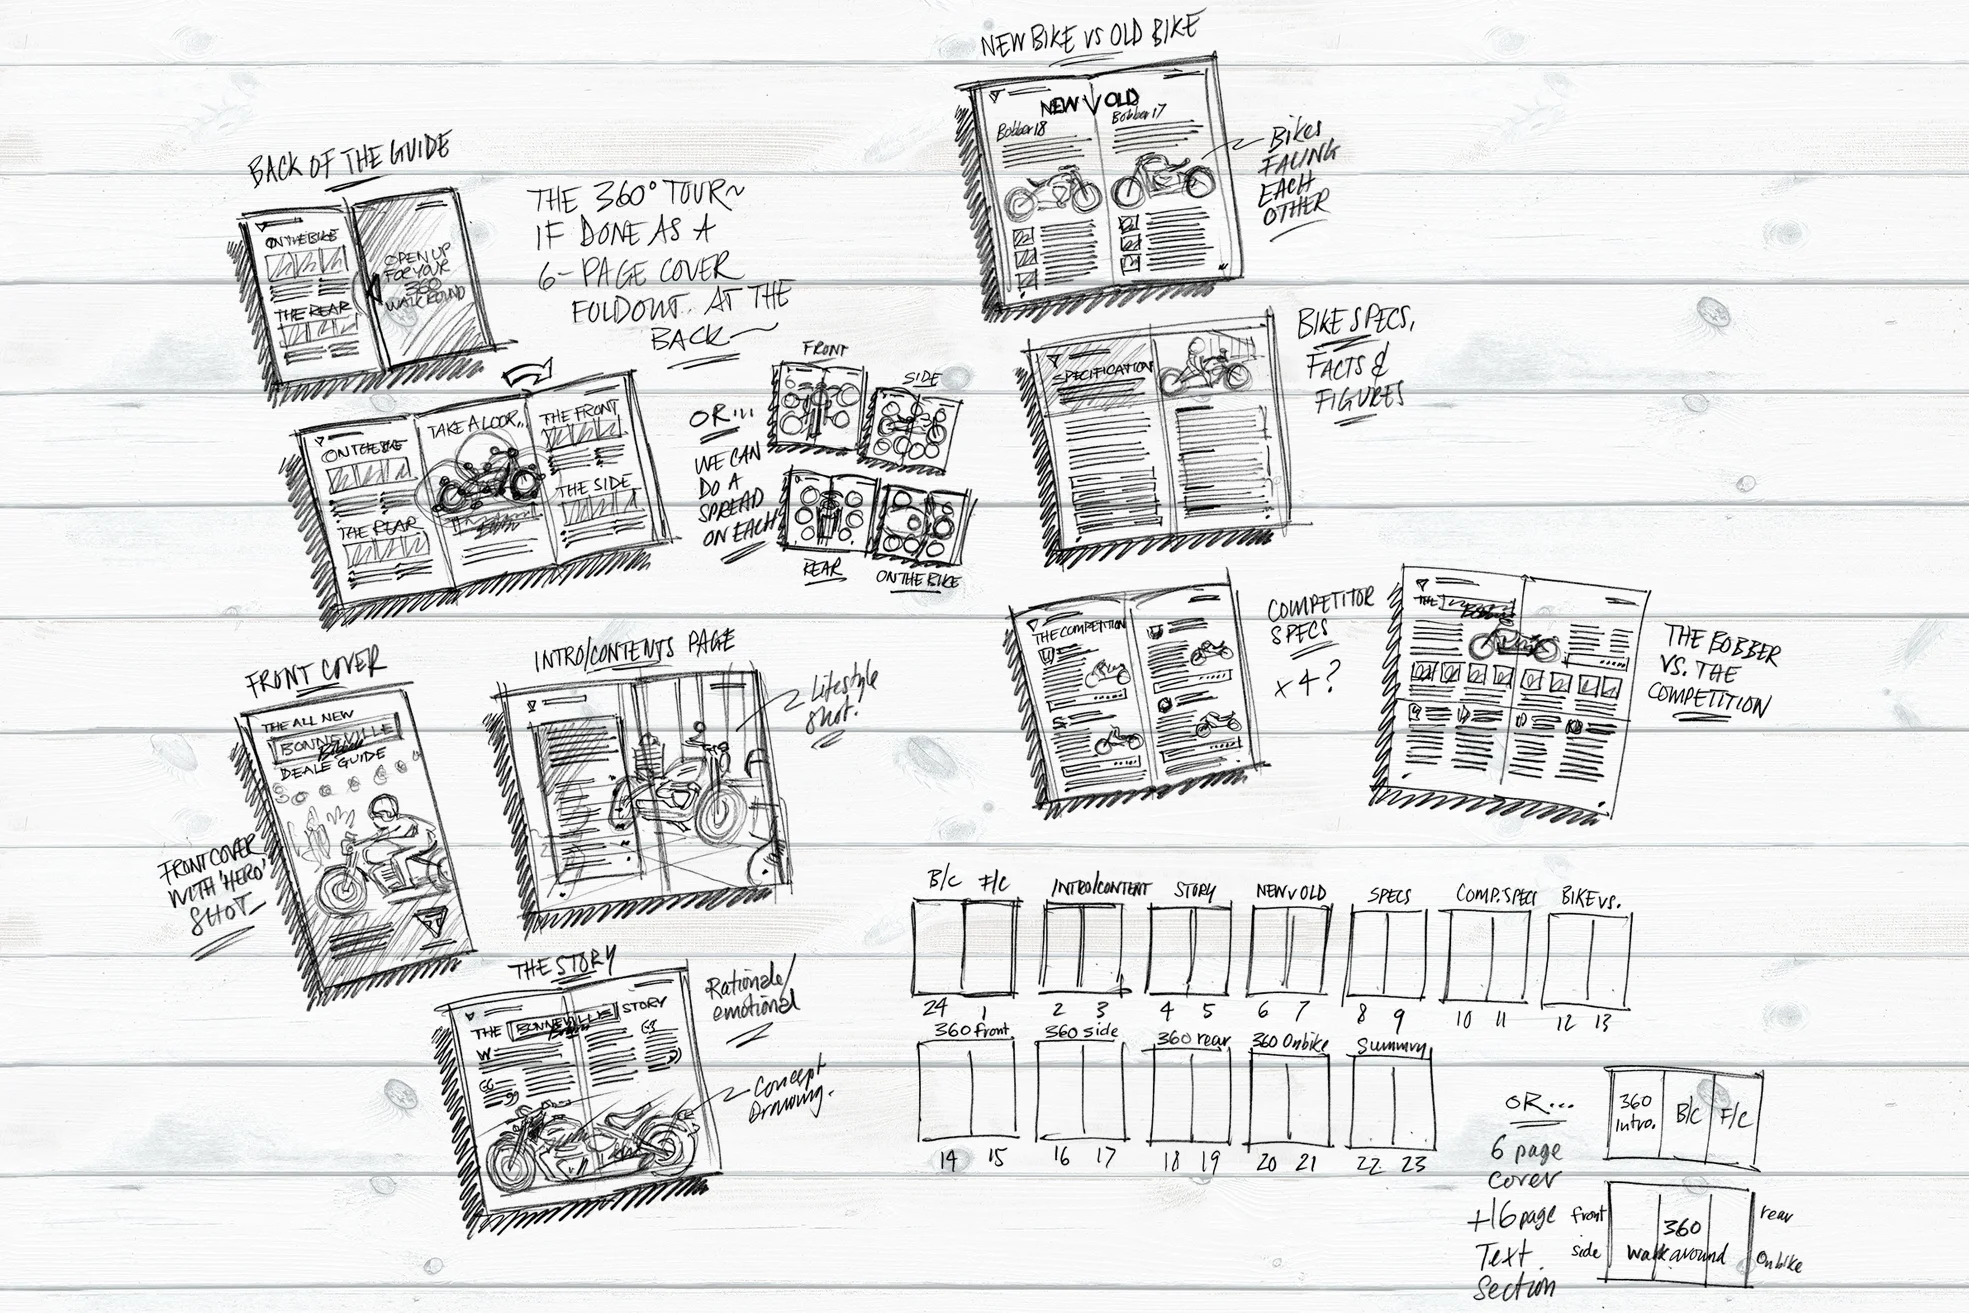 BACK OF THE GUIDE
ON THE BIKE
THE REAR
OPEN UP
FOR YOUR
360
WALKROUND
THE 360° TOUR~
IF DONE AS A
6-PAGE COVER
FOLDOUT.. AT THE
BACK~
ON THE BIKE
THE REAR
TAKE A LOOK...
THE FRONT
THE SIDE
OR...
WE CAN
DO A
SPREAD
ON EACH
FRONT
SIDE
REAR
ON THE BIKE
FRONT COVER
THE ALL NEW
BONNEVILLE
DEALE GUIDE
FRONT COVER
WITH 'HERO'
SHOT
INTRO/CONTENTS PAGE
Lifestyle
Shot.
THE STORY
THE BONNEVILLE STORY
Rationale/
emotional
Concept
Drawing.
NEW BIKE VS OLD BIKE
NEW V OLD
Bobber 18
Bobber 17
Bikes
FACING
EACH
OTHER
SPECIFICATION
BIKE SPECS,
FACTS &
FIGURES
THE COMPETITION
COMPETITOR
SPECS
x 4?
THE
THE BOBBER
VS. THE
COMPETITION
B/C F/C
INTRO/CONTENT
STORY
NEW v OLD
SPECS
COMP. SPECS
BIKE VS.
24 1
2 3
4 5
6 7
8 9
10 11
12 13
360 front
360 side
360 rear
360 Onbike
Summry
14 15
16 17
18 19
20 21
22 23
OR...
6 page
cover
+16page
Text
Section
360
Intro.
B/C
F/C
front
side
360
walkaround
rear
Onbike